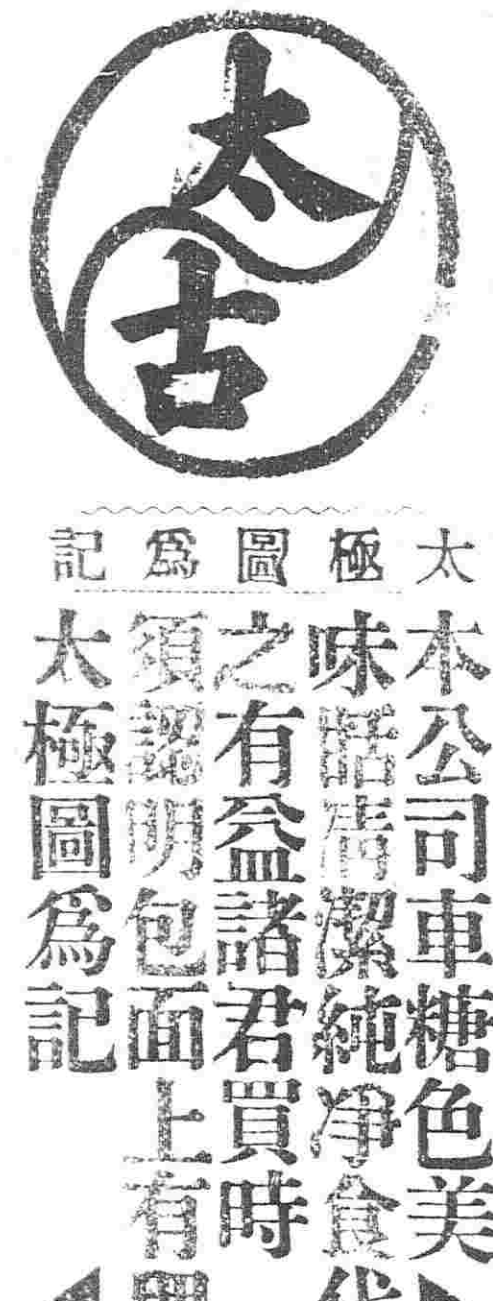 太古
太極圖爲記
本公司車糖色美
味甜清潔純淨食
之有益諸君買時
須認明包面上有
太極圖爲記